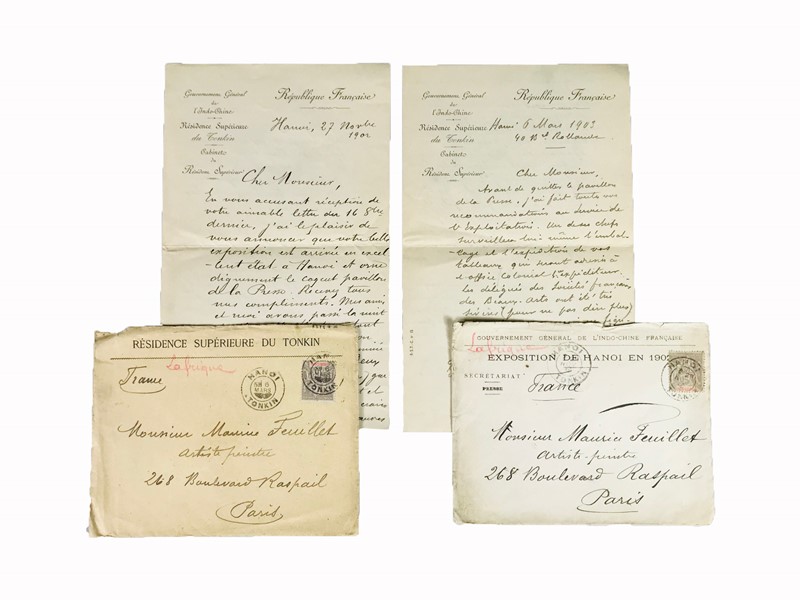 Gouvernement Général
de
l'Indo-Chine
Résidence Supérieure
du Tonkin
Cabinet
du
Résident Supérieur
République Française
Hanoi, 27 Novbre
1902
Cher Monsieur,
En vous accusant réception de
votre aimable lettre du 16 8bre
dernier, j'ai le plaisir de
vous annoncer que votre belle
exposition est arrivée en excel
-lent état à Hanoi et orne
dignement le coquet pavillon
de la Presse. Recevez tous
nos compliments. Mes amis
et moi avons passé la nuit
Gouvernement Général
de
l'Indo-Chine
Résidence Supérieure
du Tonkin
Cabinet
du
Résident Supérieur
République Française
Hanoi 6 Mars 1903
40 Bd Rollandes
Cher Monsieur,
Avant de quitter le pavillon
de la Presse, j'ai fait toutes vos
recommandations au Service de
l'Exploitation. Un de ses chefs
surveillera lui même l'embal
-lage et l'expédition de vos
tableaux qui seront adressés à
l'office Colonial
les délégués des Sociétés françaises
des Beaux-Arts ont été très
(pour ne pas dire plus)
RÉSIDENCE SUPÉRIEURE DU TONKIN
Lafrique
France
HANOI
MARS
TONKIN
Monsieur Maurice Feuillet
Artiste peintre
268 Boulevard Raspail
Paris
GOUVERNEMENT GÉNÉRAL DE L'INDO-CHINE FRANÇAISE
Lafrique
EXPOSITION DE HANOI EN 1902
SECRÉTARIAT
PRESSE
France
HANOI
TONKIN
Monsieur Maurice Feuillet
Artiste-peintre
268 Boulevard Raspail
Paris